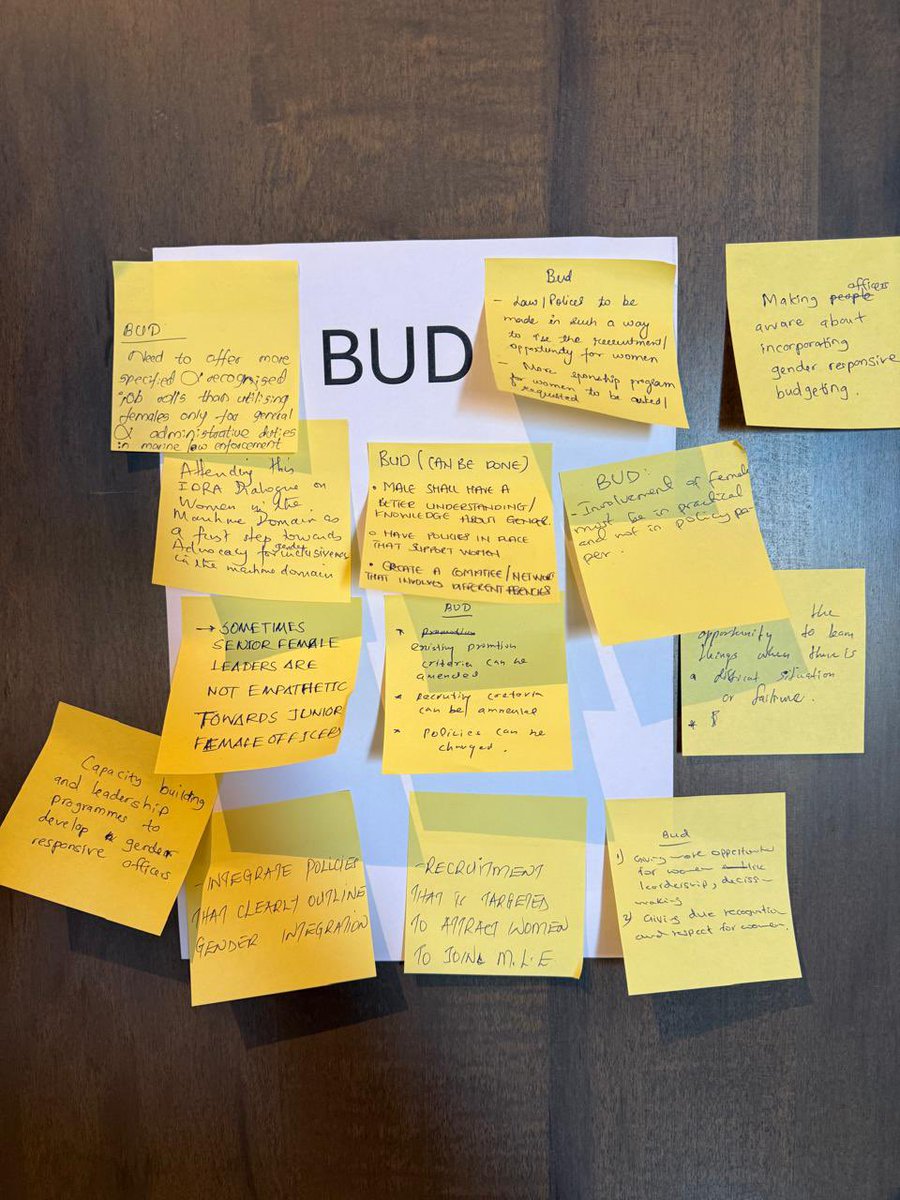 BUD
BUD
Need to offer more
specified & recognised
job roles than utilising
females only for general
& administrative duties
in marine law enforcement
Bud
- Law/Polices to be
made in such a way
to the recruitment/
opportunity for women
- More sponship program
for women to be asked/
requested
officers
Making people
aware about
incorporating
gender responsive
budgeting.
Attending this
IORA Dialogue on
Women in the
Maritime Domain as
a first step towards
gender
Advocacy for inclusiveness
in the maritime domain
BUD (CAN BE DONE)
• MALE SHALL HAVE A
BETTER UNDERSTANDING/
KNOWLEDGE ABOUT GENDER.
• HAVE POLICIES IN PLACE
THAT SUPPORT WOMEN
• CREATE A COMMITEE/NETWORK
THAT INVOLVES DIFFERENT AGENCIES
BUD:
- Involvement of female
must be in practical
and not in policy pa-
per.
→ SOMETIMES
SENIOR FEMALE
LEADERS ARE
NOT EMPATHETIC
TOWARDS JUNIOR
FEMALE OFFICERS
BUD
* Promotion
existing promtion
criteria can be
amended
* Recruting creteria
can be ammended
* Policies can be
changed.
the
opportunity to learn
things when there is
a difficult situation
or failure.
*
Capacity building
and leadership
programmes to
develop gender
responsive officers
- INTEGRATE POLICIES
THAT CLEARLY OUTLINE
GENDER INTEGRATION
- RECRUITMENT
THAT IS TARGETED
TO ATTRACT WOMEN
TO JOIN M.L.E
Bud
1) Giving more opportunity
for women like
leardership, decission
making
2) Giving due recognition
and respect for women.